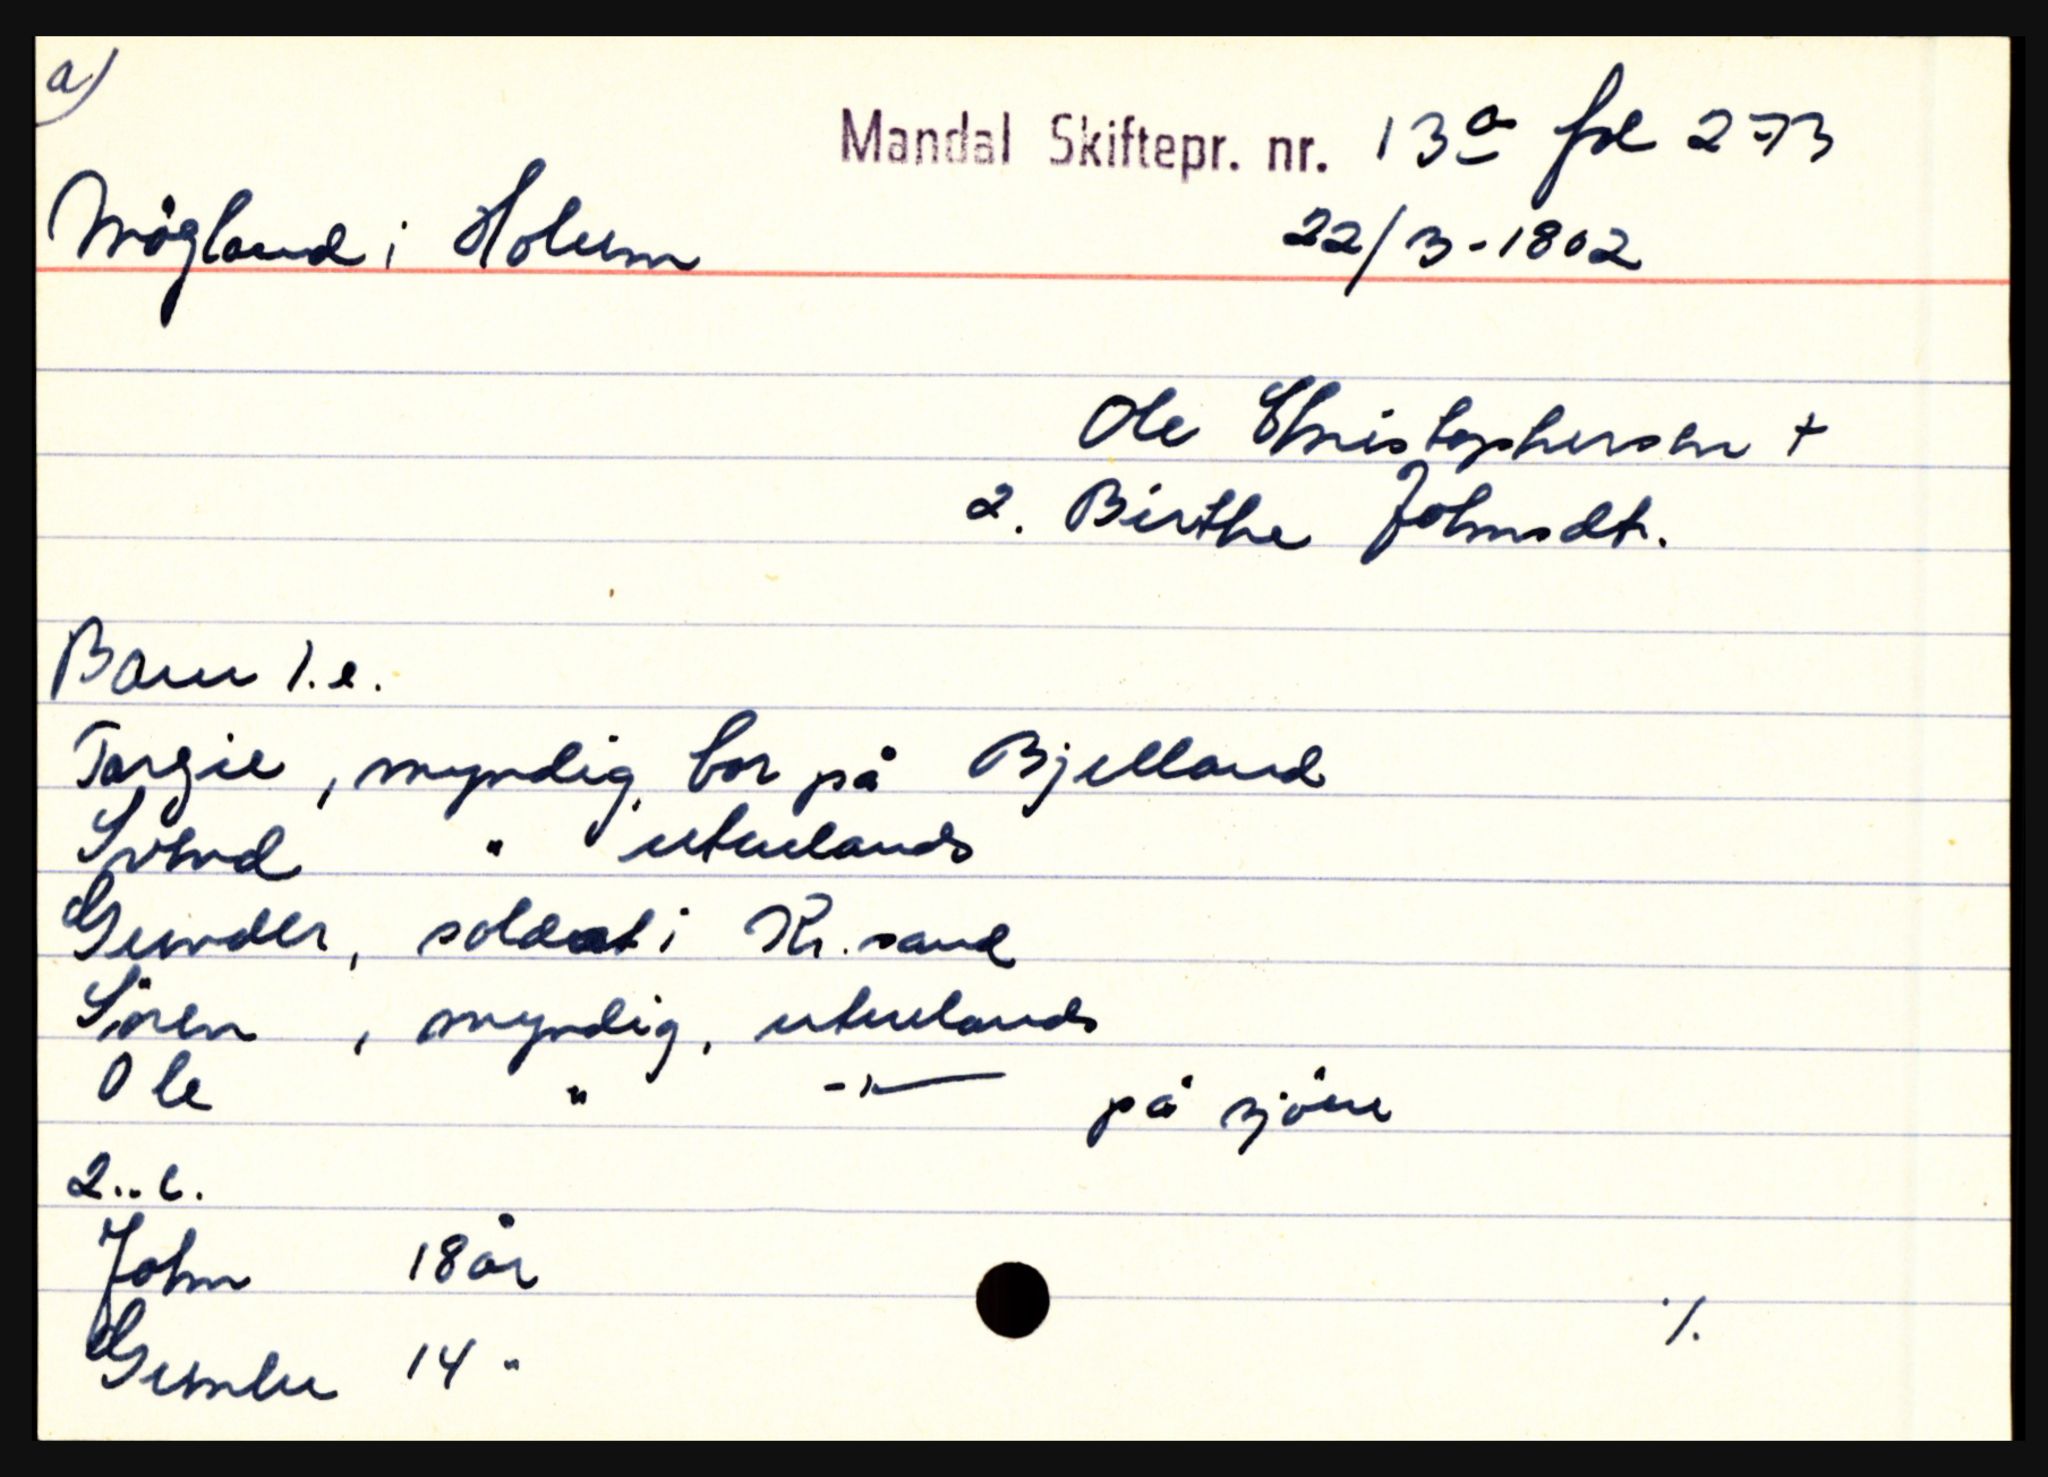 a)
Mandal Skiftepr. nr. 13a fol 273
Mögland i Holum 22/3-1802
Ole Christophersen +
2. Birthe Johnsdtr.
Barn 1.e.
Targie, myndig, bor på Bjelland
" utenlands
Gunder, soldat i Kr.sand
Sören, myndig, utenlands
Ole " -"- på sjöen
2..e.
John 18 år
14 "
./.